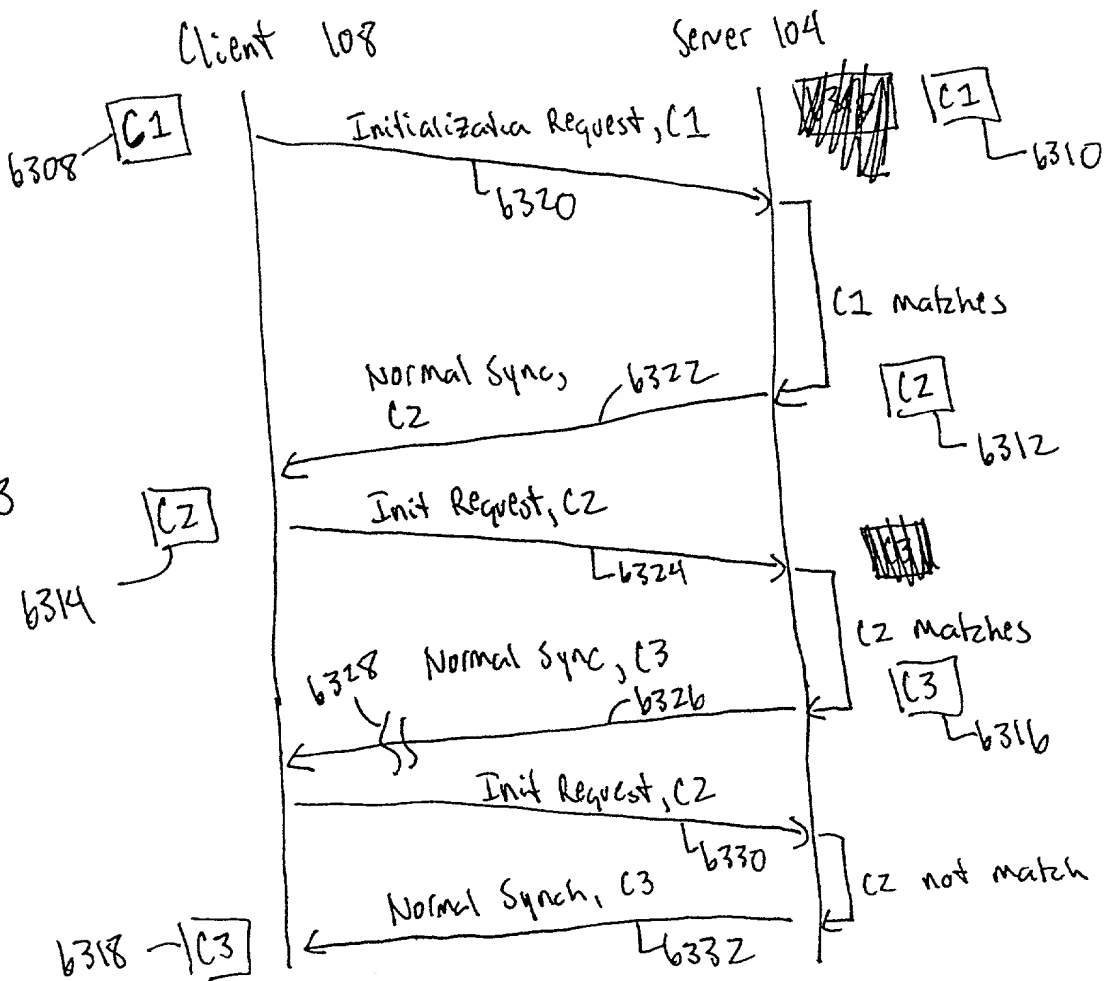 Client 108
Server 104
C1
6308
Initialization Request, C1
6320
C1
6310
C1 matches
Normal Sync,
C2
6322
C2
6312
3
C2
6314
Init Request, C2
6324
C2 matches
6328
Normal Sync, C3
6326
C3
6316
Init Request, C2
6330
C2 not match
Normal Synch, C3
6332
6318
C3